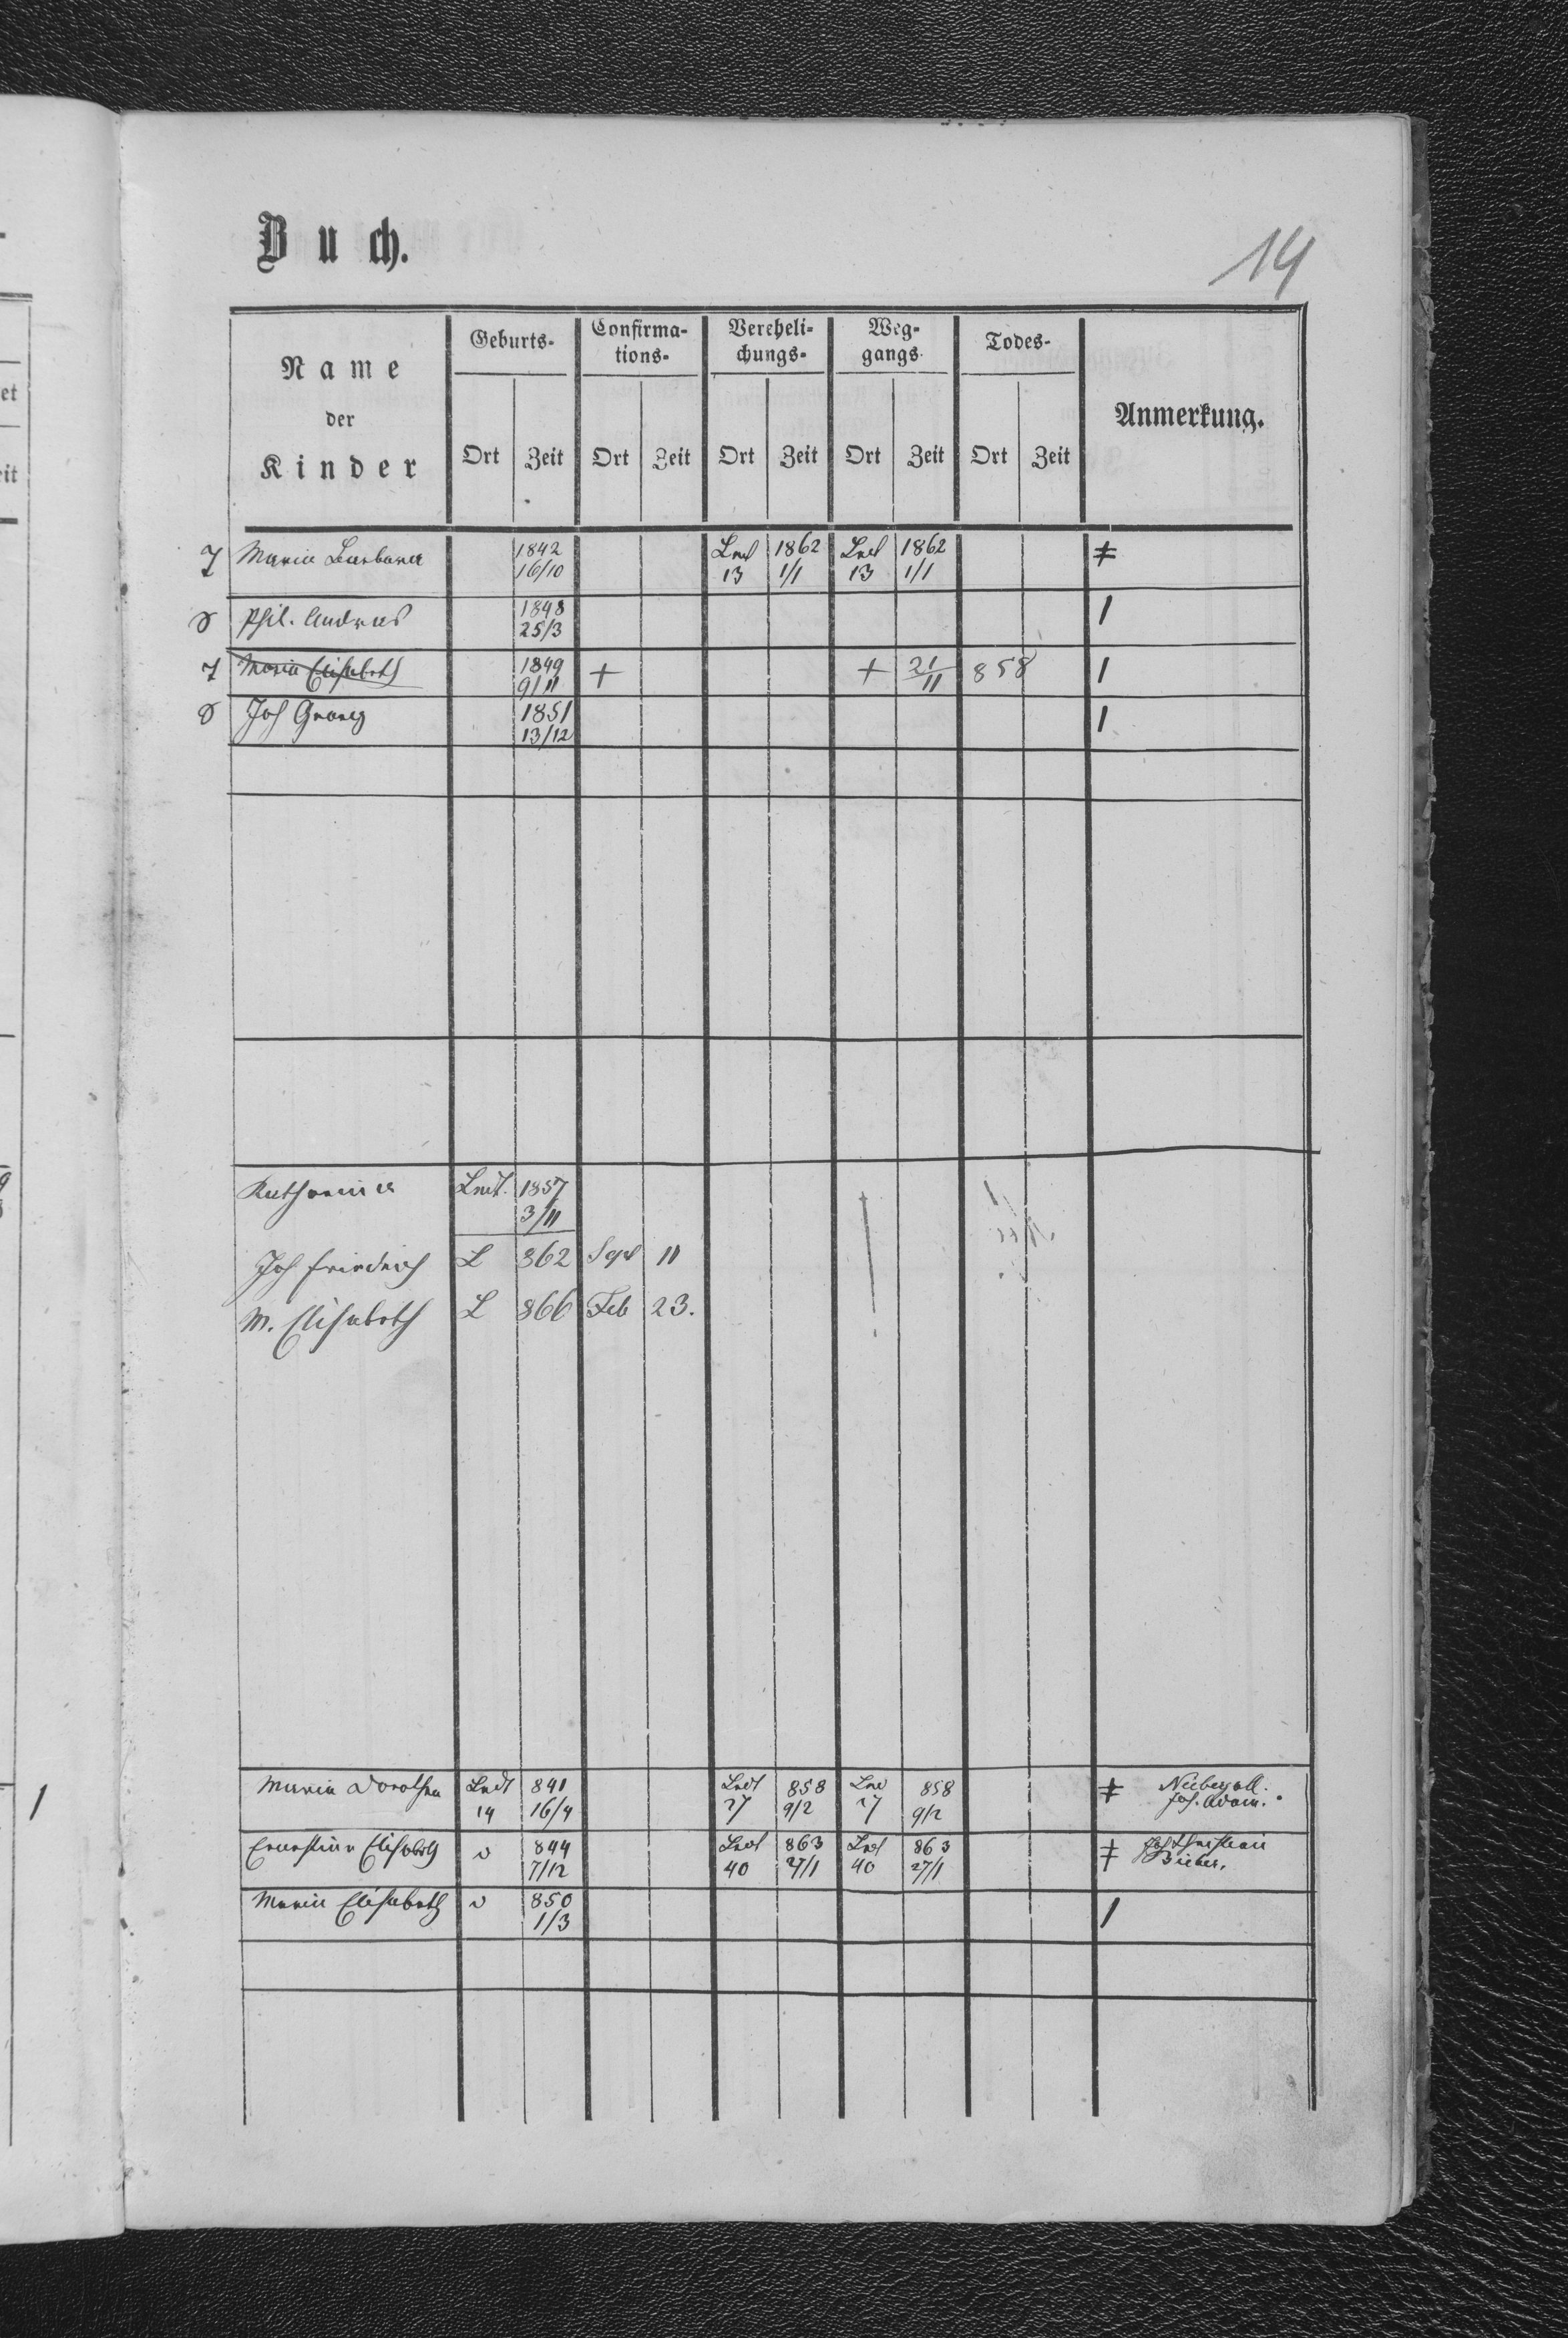 Buch.
14
Name
der
Kinder
Geburts-
Confirma-
tions-
Vereheli-
chungs-
Weg-
gangs
Todes-
Anmerkung.
Ort Zeit Ort Zeit Ort Zeit Ort Zeit Ort Zeit
Maria Barbara 1842 1862 1862 ‡
16/10 13 1/1 13 1/1
Phil. Andreas 1848 1
25/3
Maria Elisabeth 1849 + + 21/11 858 1
9/11
Joh Georg 1851 1
13/12
Katharina 1857
3/11
Joh Friedrich L 862 Sept 11
M. Elisabeth L 866 Feb 23.
Maria Dorothea 841 858 858 ‡
14 16/4 27 9/2 27 9/2 Joh. Adam.
Ernestine Elisabeth 844 863 863 ‡ Joh Christian
7/12 40 27/1 40 27/1 Bieber.
Maria Elisabeth 850 1
1/3
1
et
eit